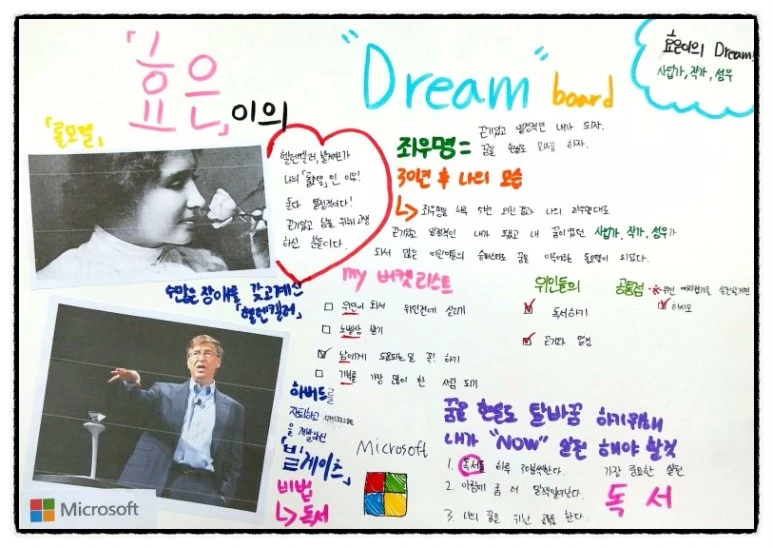 「효은」이의
"Dream" board
효은이의 Dream!
사업가, 작가, 성우
「롤모델」
헬렌켈러, 빌게이츠가
나의 「롤모델」인 이유!
둘다 열정적이다!
끈기있고 남을 위해 고생
하신 분들이다.
좌우명 = 끈기있고 열정적인 내가 되자.
꿈을 현실로 하자.
30년 후 나의 모습
좌우명을 하루 5번 외친 결과 나의 좌우명대로
끈기있고 열정적인 내가 됐고 내 꿈이었던 사업가, 작가, 성우가
되서 많은 어린이들의 꿈을 되었다.
수많은 장애를 갖고계신
「헬렌켈러」
my 버켓리스트
위인이 되서 위인전에 실리기
노벨상 받기
남에게 도움되는 일 꼭! 하기
기부를 가장 많이 한 사람 되기
위인들의 공통점
독서하기
끈기와 열정
하버드를
자퇴하고
을 개발하신
「빌게이츠」
비법
독서
Microsoft
Microsoft
꿈을 현실로 탈바꿈 하기위해
내가 "NOW" 실천 해야 할것
1. 독서를 하루 30분씩한다.
2. 아침에 좀 더 일찍일어난다.
3. 나의 꿈을 위한 공부를 한다.
가장 중요한 실천
독서